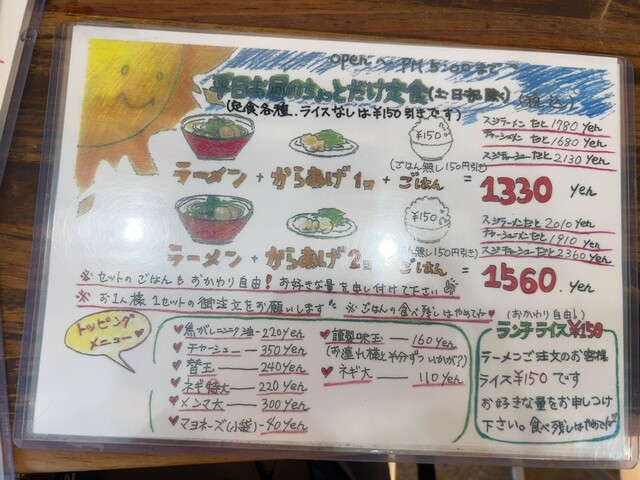 open〜PM 5:00まで
平日お昼のちょっとだけ定食(土日祝除く)(税込)
(定食各種、ライスなしは¥150引きです)
スジラーメンだと1780yen
チャーシューメンだと1680yen
スジチャーシューだと2130yen
¥150
(ごはん無し150円引き)
ラーメン + からあげ1コ + ごはん = 1330 yen
スジラーメンだと2010yen
チャーシューメンだと1910yen
スジチャーシューだと2360yen
¥150
無し150円引き)
ラーメン + からあげ2コ + ごはん = 1560.yen
※セットのごはんもおかわり自由!お好きな量を申し付けて下さい
※お1人様1セットの御注文をお願いします ※ごはんの食べ残しはやめてね♥
トッピングメニュー♥
♥焦がしニンニク油-220yen
♥チャーシュー―350yen
♥替玉―240yen
♥ネギ特大―220yen
♥メンマ大―300yen
♥マヨネーズ(小袋)-40yen
♥謹製味玉―160yen
(お連れ様と半分ずついかが?)
♥ネギ大―110yen
(おかわり自由!)
ランチライス¥150
ラーメンご注文のお客様
ライス¥150です
お好きな量をお申しつけ
下さい。食べ残しはやめてね